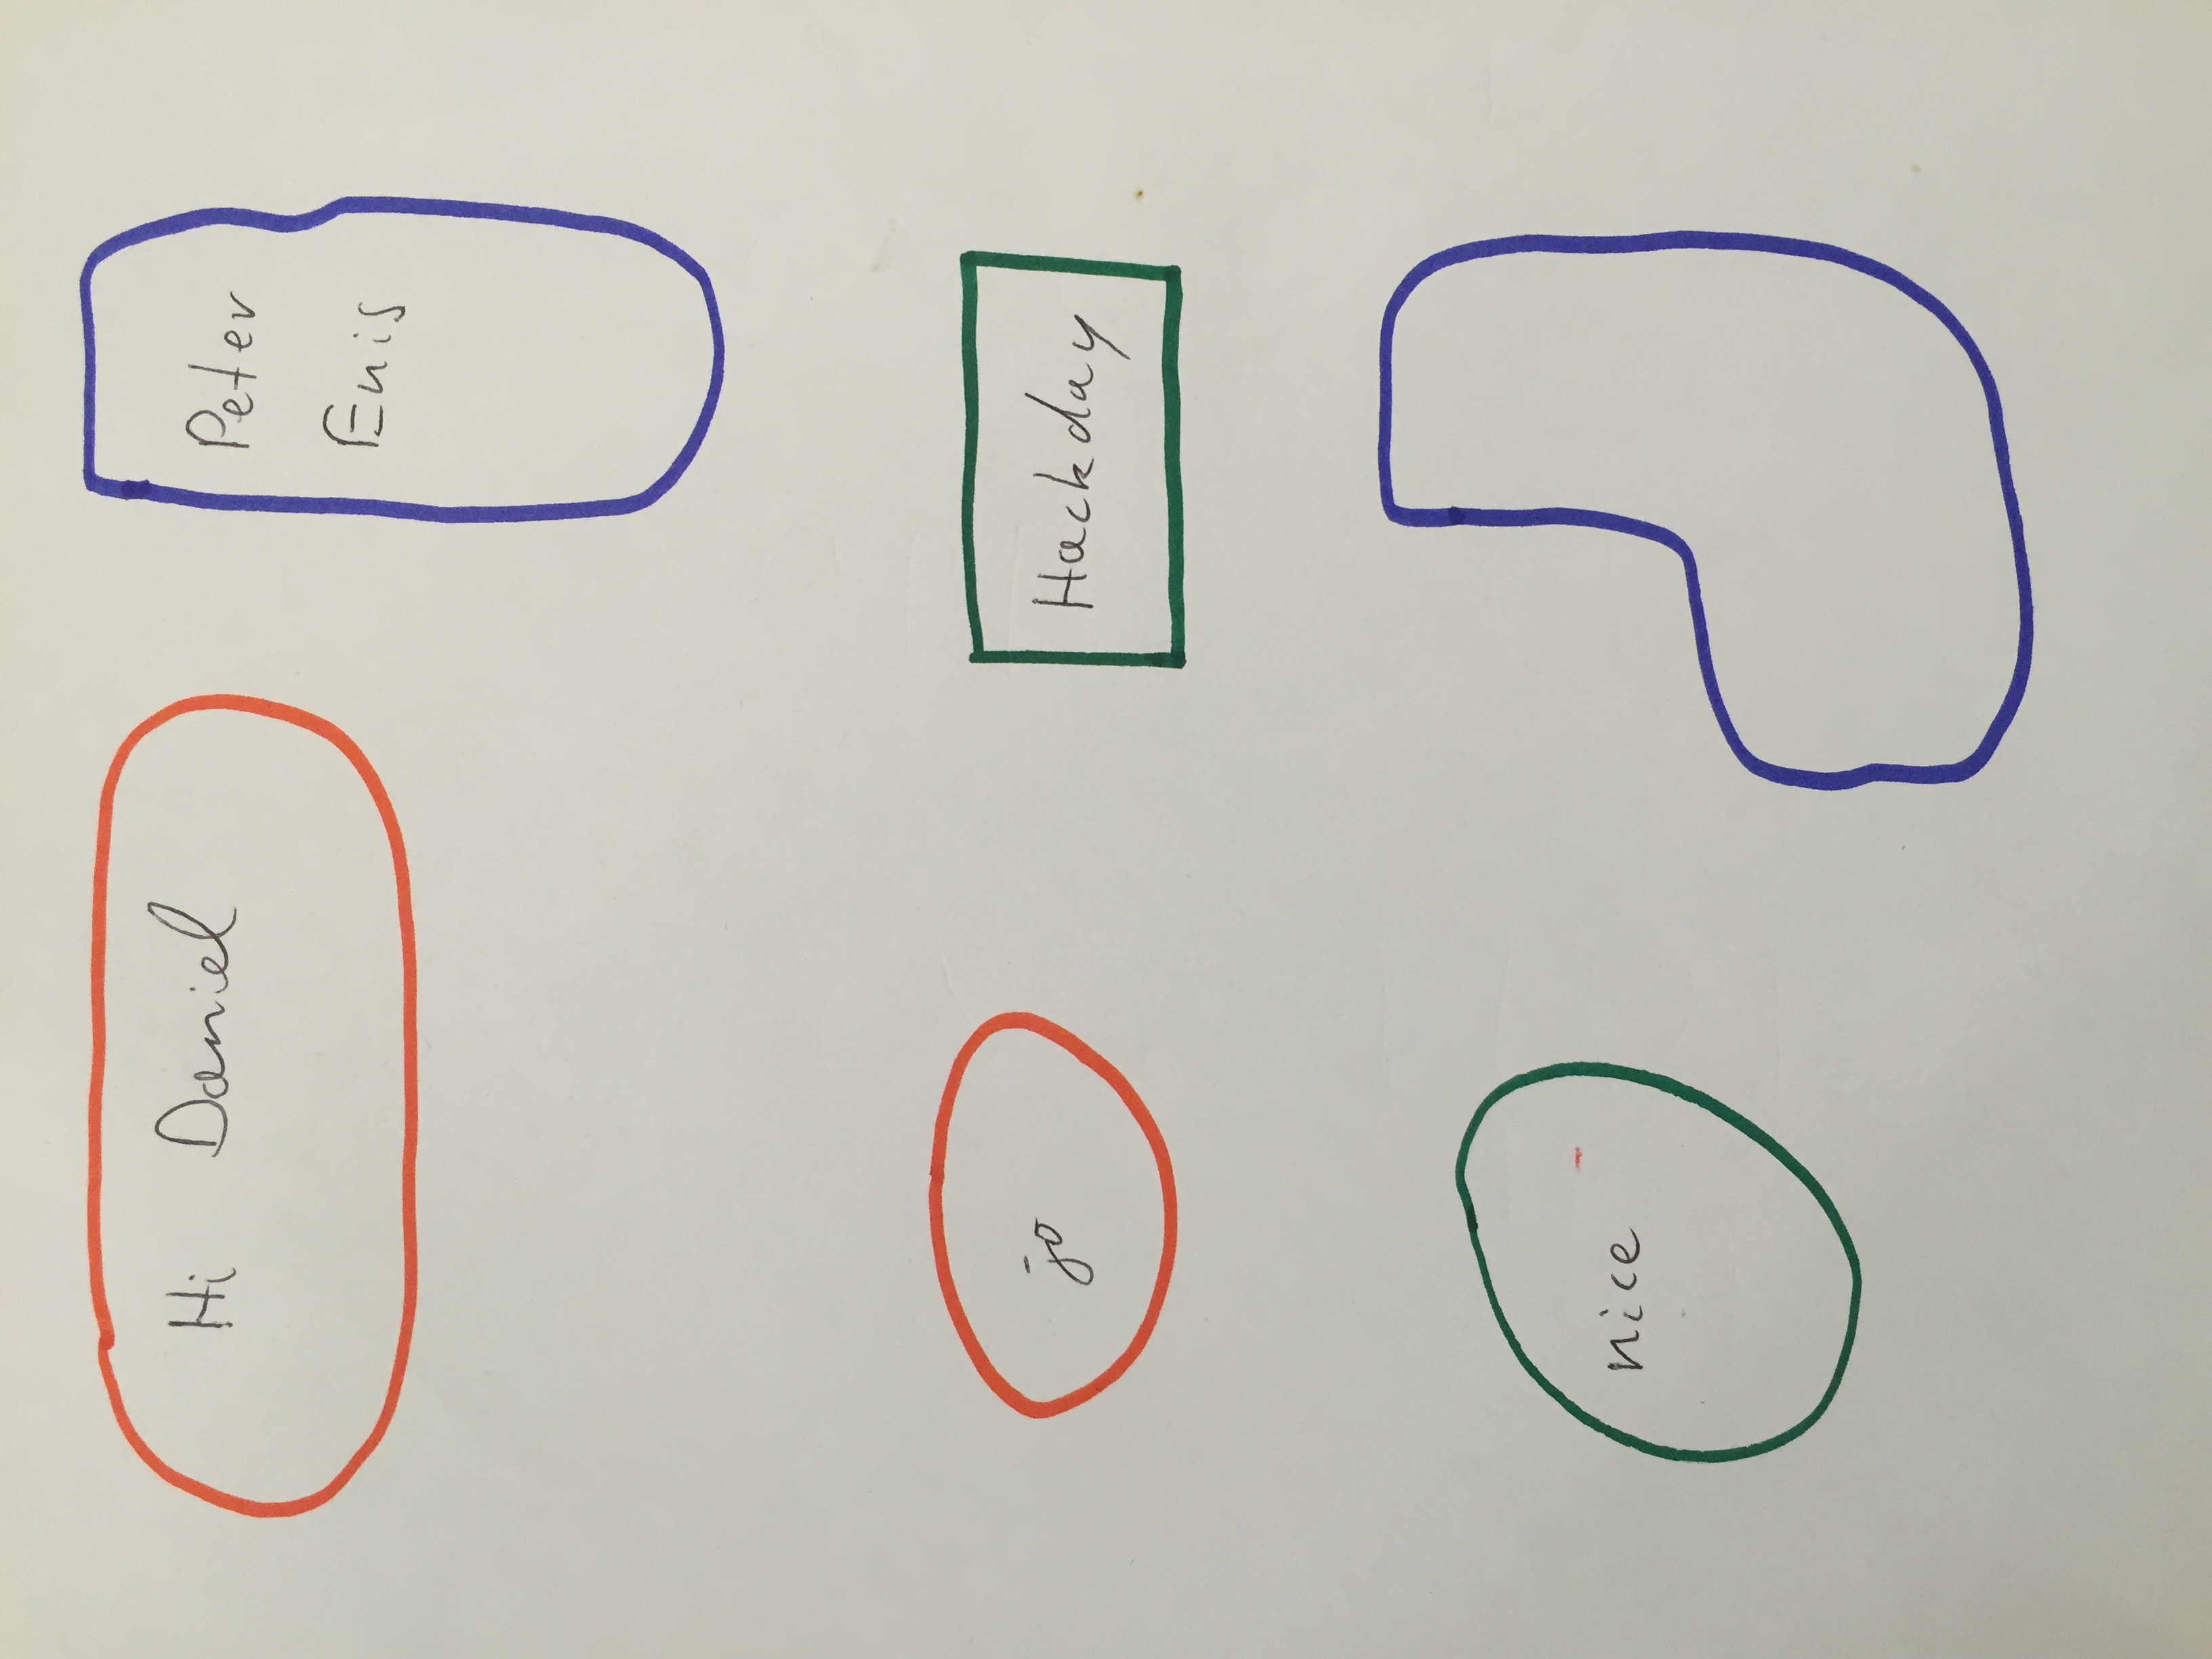 Hi Daniel
Peter
Enis
jo
Hackday
nice